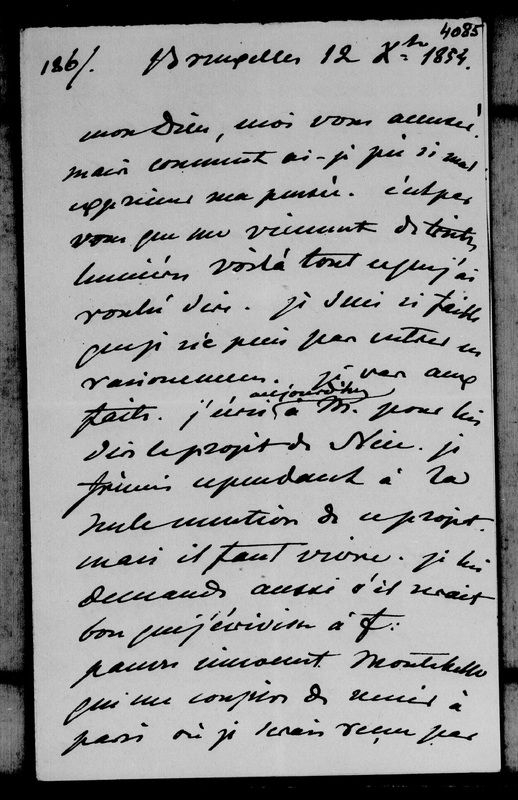 4085
186/. Bruxelles 12 Xbre 1854.
mon Dieu, moi vous accuser!
mais comment ai-je pu si mal
exprimer ma pensée. c'est par
vous que me viennent toutes
lumières voilà tout ce que j'ai
voulu dire. je suis si faible
que je n'ai puis pas entrer en
raisonnemens. je vais aux
faits. j'écris aujourd'hui à M. pour lui
dire le projet de Nice. je
frémis cependant à la
seule mention de ce projet.
mais il faut vivre. je lui
demande aussi s'il serait
bon que j'écrivisse à f:
pauvre innocent Montebello
qui me conjure de venir à
paris où je serais reçue par